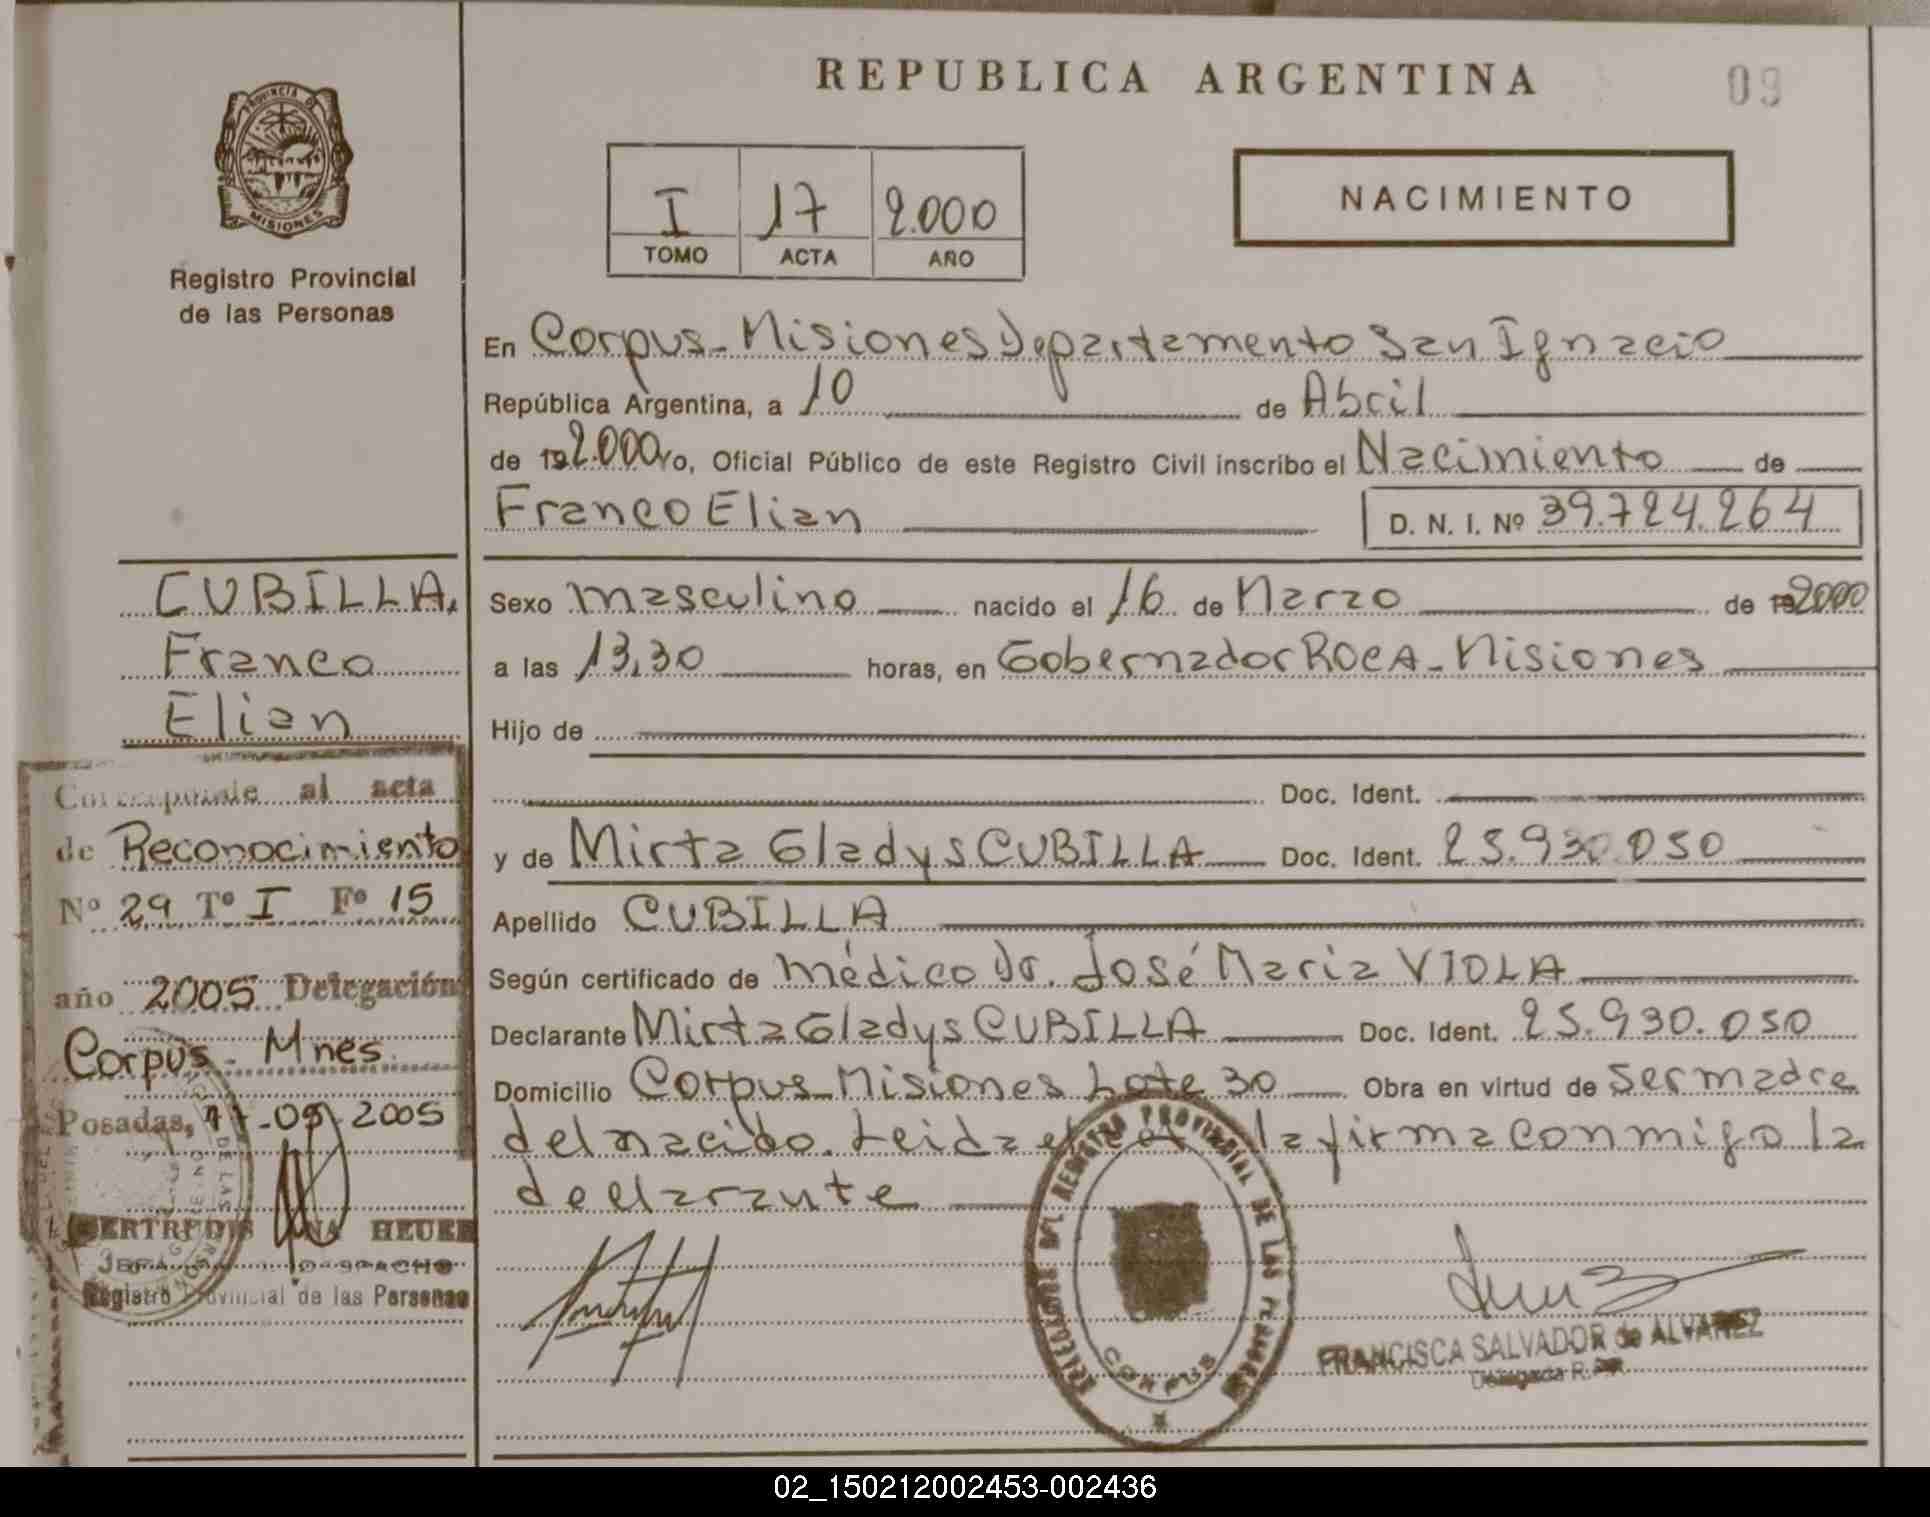 REPUBLICA ARGENTINA
09
PROVINCIA DE
MISIONES
Registro Provincial
de las Personas
I 17 2.000
TOMO ACTA AÑO
NACIMIENTO
En Corpus - Misiones Departamento San Ignacio
República Argentina, a 10 de Abril
de 192.000 yo, Oficial Público de este Registro Civil inscribo el Nacimiento de
Franco Elian D. N. I. Nº 39.724.264
CUBILLA.
Franco
Elian
Sexo masculino nacido el 16 de Marzo de 192000
a las 13,30 horas, en Gobernador ROCA - Misiones
Hijo de
Doc. Ident.
y de Mirta Gladys CUBILLA Doc. Ident. 25.930.050
Apellido CUBILLA
Según certificado de médico Dr. José Maria VIOLA
Declarante Mirta Gladys CUBILLA Doc. Ident. 25.930.050
Domicilio Corpus - Misiones Lote 30 Obra en virtud de ser madre
del nacido. Leida el acta la firma conmigo la
declarante
Corresponde al acta
de Reconocimiento
Nº 29 Tº I Fº 15
año 2005 Delegación
Corpus - Mnes.
Posadas, 17-05-2005
HEUER
DESPACHO
Registro Provincial de las Personas
DELEGACION DEL REGISTRO PROVINCIAL DE LAS PERSONAS
CORPUS
FRANCISCA SALVADOR de ALVAREZ
Delegada
02_150212002453-002436